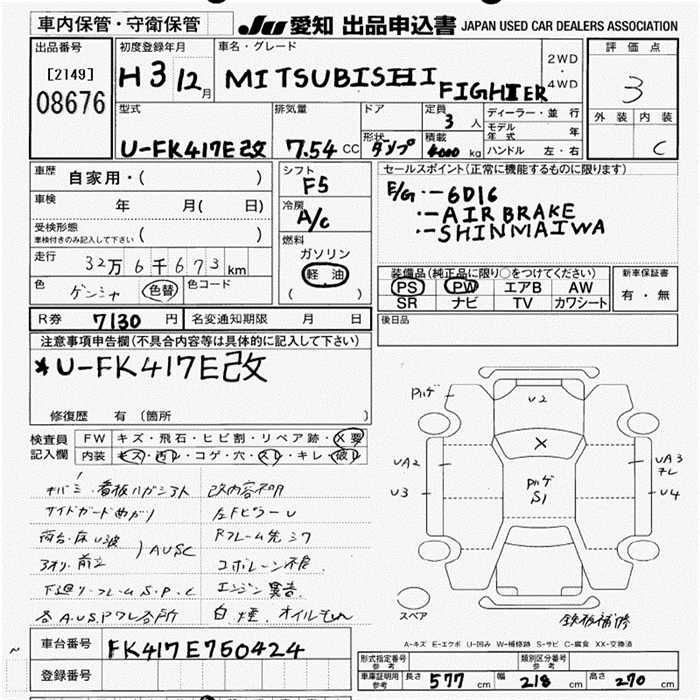 車内保管・守衛保管
JU 愛知 出品申込書 JAPAN USED CAR DEALERS ASSOCIATION
出品番号
[2149]
08676
初度登録年月
H3 12月
車名・グレード
MITSUBISHI FIGHTER
2WD
・
4WD
評価点
3
外装 内装
C
型式
U-FK417E改
排気量
7.54 CC
ドア
形状
ダンプ
定員
3 人
積載
4000 kg
ディーラー・並行
モデル年式 年
ハンドル 左・右
車歴 自家用・( )
車検 年 月( 日)
受検形態
車検付きのみ記入して下さい ( )
走行 32万6千673km
色 ゲンシャ 色替 色コード
シフト
F5
冷房
A/C
燃料
ガソリン
軽油
( )
セールスポイント(正常に機能するものに限ります)
E/G・-6D16
・-AIR BRAKE
・-SHINMAIWA
装備品(純正品に限り○をつけてください)
PS PW エアB AW
SR ナビ TV カワシート
新車保証書
有・無
R券 7130 円 名変通知期限 月 日
後日品
注意事項申告欄(不具合内容等は具体的に記入して下さい)
*U-FK417E改
修復歴 有(箇所 )
検査員記入欄
FW キズ・飛石・ヒビ割・リペア跡・X要
内装 キズ・汚レ・コゲ・穴・スレ・キレ・破レ
キバミ・看板ハガシアト 改内容不明
サイドガード曲ガリ 左FピラーU
荷台・床U波 Rフレーム先
アオリ・前立 )AUSC
下廻リ・フレームS.P.C エンジン異音
各A.U.S.Pワレ各所 白煙、オイルもれ
Pハゲ
U2
X
UA2
U3
Pハゲ
S1
UA3
ワレ
U4
スペア
鉄板補修
A-キズ E-エクボ U-凹み W-補修跡 S-サビ C-腐食 XX-交換済
車台番号 FK417E750424
登録番号
形式指定番号
参考
類別区分番号
参考
車庫証明用
参考
長さ 577 cm 幅 218 cm 高さ 270 cm